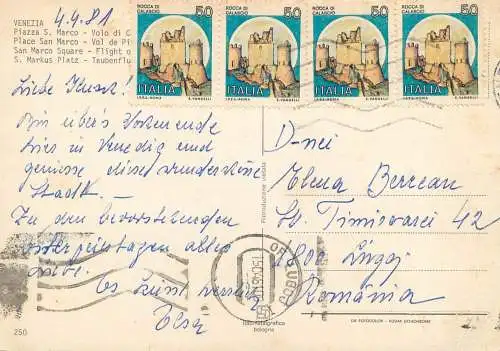 VENEZIA 4.4.81
Piazza S. Marco - Volo di C
Place San Marco - Vol de Pi
San Marco Square - Flight o
S. Markus Platz - Taubenflu
ROCCA DI CALASCIO 50
ITALIA
I.P.Z.S.-ROMA E. VANGELLI
ROCCA DI CALASCIO 50
ITALIA
I.P.Z.S.-ROMA E. VANGELLI
ROCCA DI CALASCIO 50
ITALIA
I.P.Z.S.-ROMA E. VANGELLI
ROCCA DI CALASCIO 50
ITALIA
I.P.Z.S.-ROMA E. VANGELLI
Liebe
Bin über's Wochenende
hier in Venedig und
genieße diese wunderschöne
Stadt.
Zu den bevorstehenden
Osterfeiertagen alles
Liebe. Es
Elsa
250
Riproduzione vietata
bologna
D-nei
Elena Bercean
Str. Timisoarei 42
1800 Lugoj
România
DA FOTOCOLOR - KODAK EKTACHROME